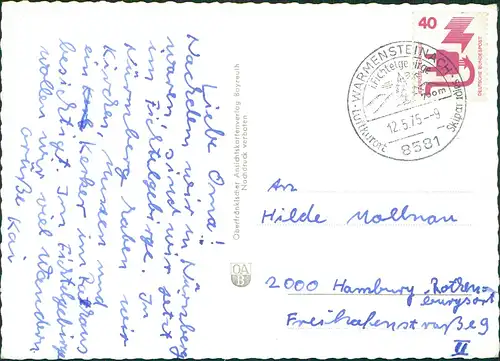 Liebe Oma!
Nachdem wir in Nürnberg
waren, sind wir jetzt
im Fichtelgebirge. In
Nürnberg haben wir
Kirchen, museen und
ein Kerker im Rathaus
besichtigt. Im Fichtelgebirge
wollen wir viel wandern
Grüße Kai
Oberfränkischer Ansichtskartenverlag Bayreuth
Nachdruck verboten
OA
B
40
DEUTSCHE BUNDESPOST
WARMENSTEINACH
Fichtelgebirge
Luftkurort
12.5.75-9
8581
An
Hilde Mollnau
2000 Hamburg, Rothen-
burgsort
Freihafenstraße 9
II